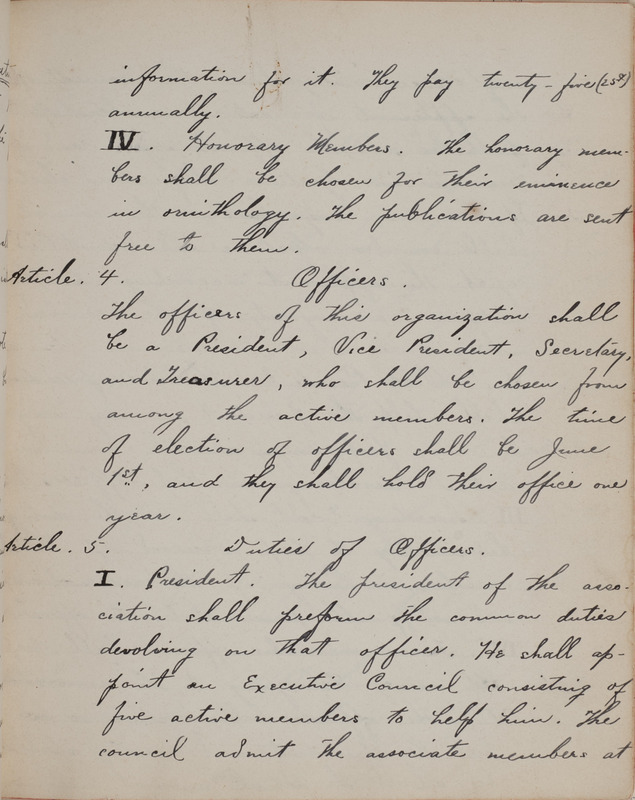 information for it. They pay twenty-five (25¢)
annually.
IV. Honorary Members. The honorary mem-
bers shall be chosen for their eminence
in ornithology. The publications are sent
free to them.
Article. 4. Officers.
The officers of this organization shall
be a President, Vice President, Secretary,
and Treasurer, who shall be chosen from
among the active members. The time
of election of officers shall be June
1st, and they shall hold their office one
year.
Article. 5. Duties of Officers.
I. President. The president of the asso-
ciation shall preform the common duties
devolving on that officer. He shall ap-
point an Executive Council consisting of
five active members to help him. The
council admit the associate members at